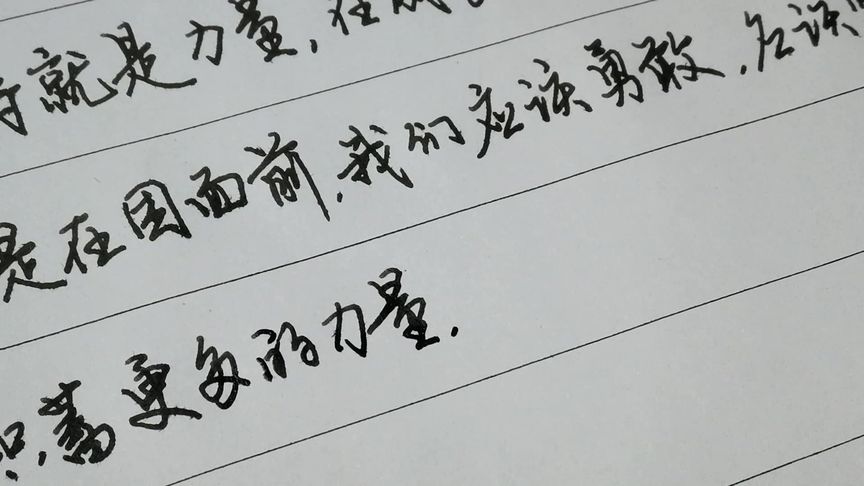 就是力量,在
是在困面前,我们应该勇敢,应该
积蓄更多的力量.